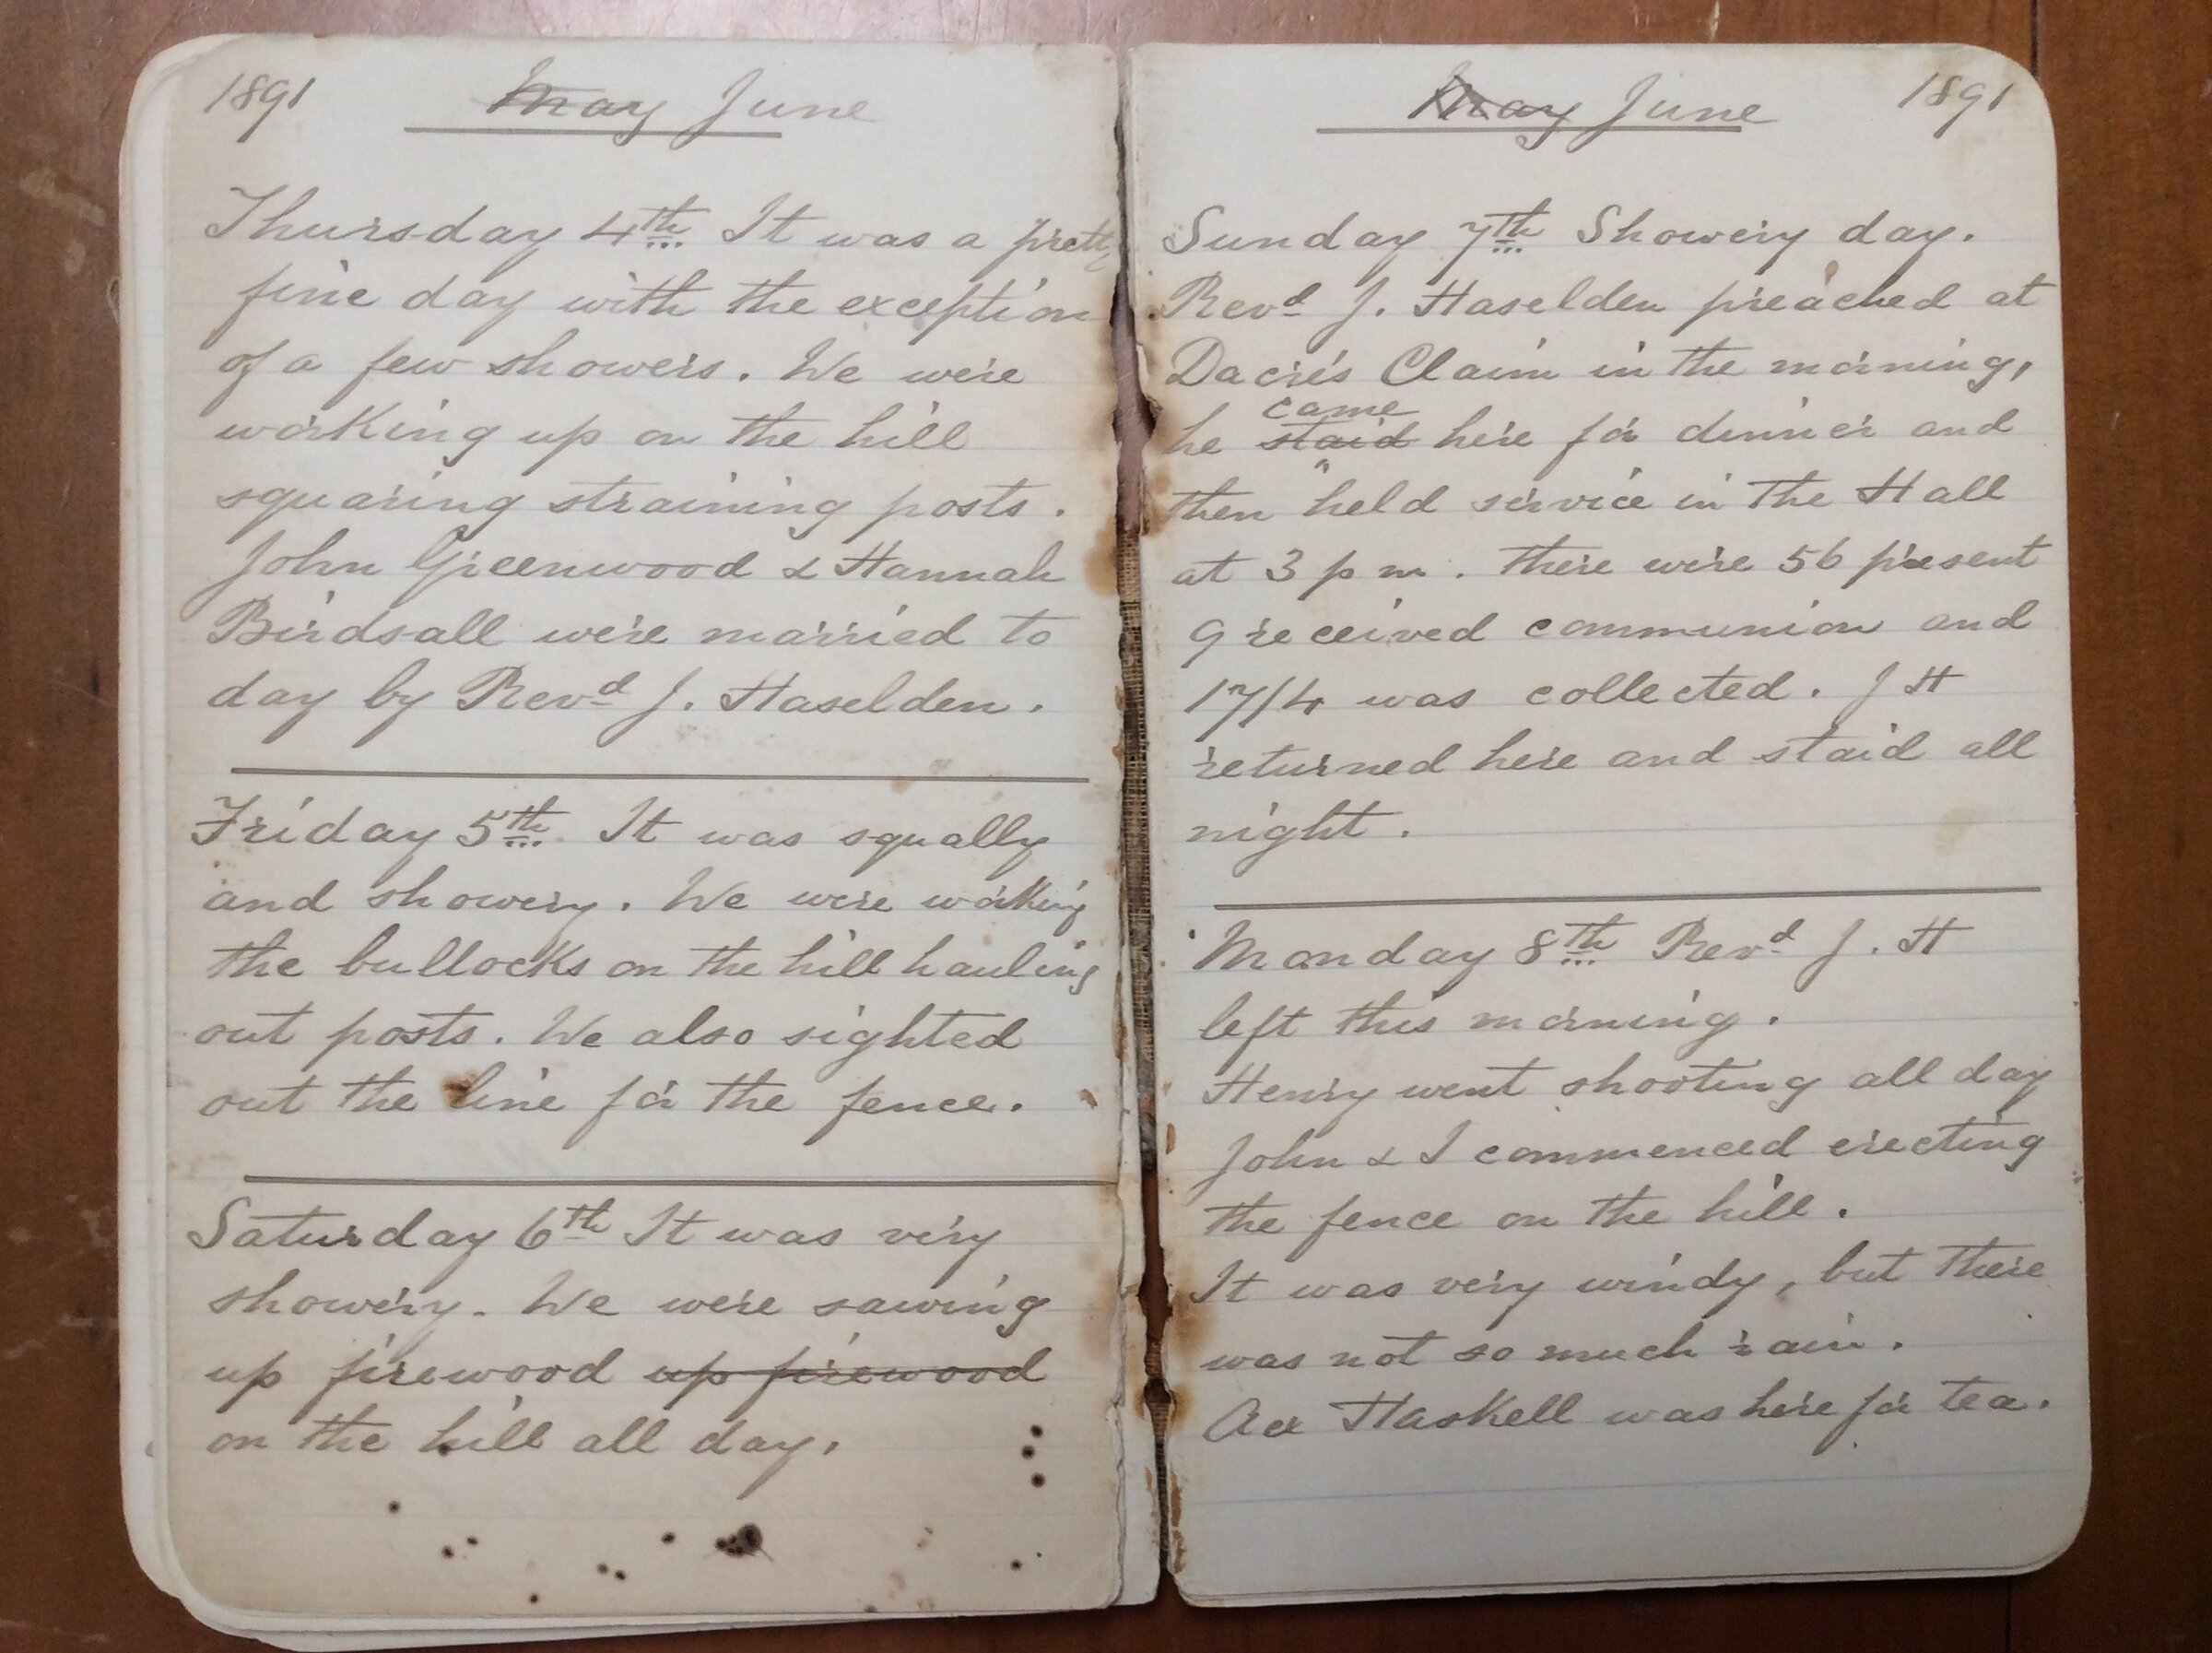 1891 May June
Thursday 4th It was a pretty
fine day with the exception
of a few showers. We were
working up on the hill
squaring straining posts.
John Greenwood & Hannah
Birdsall were married to
day by Revd J. Haselden.
Friday 5th It was squally
and showery. We were working
the bullocks on the hill hauling
out posts. We also sighted
out the line for the fence.
Saturday 6th It was very
showery. We were sawing
up firewood up firewood
on the hill all day.
May June 1891
Sunday 7th Showery day.
Revd J. Haselden preached at
Dacre's Claim in the morning,
came
he staid here for dinner and
then held service in the Hall
at 3 p m. There were 56 present
9 received communion and
17/4 was collected. J H
returned here and staid all
night.
Monday 8th Revd J. H
left this morning.
Henry went shooting all day
John & I commenced erecting
the fence on the hill.
It was very windy, but there
was not so much rain.
Haskell was here for tea.